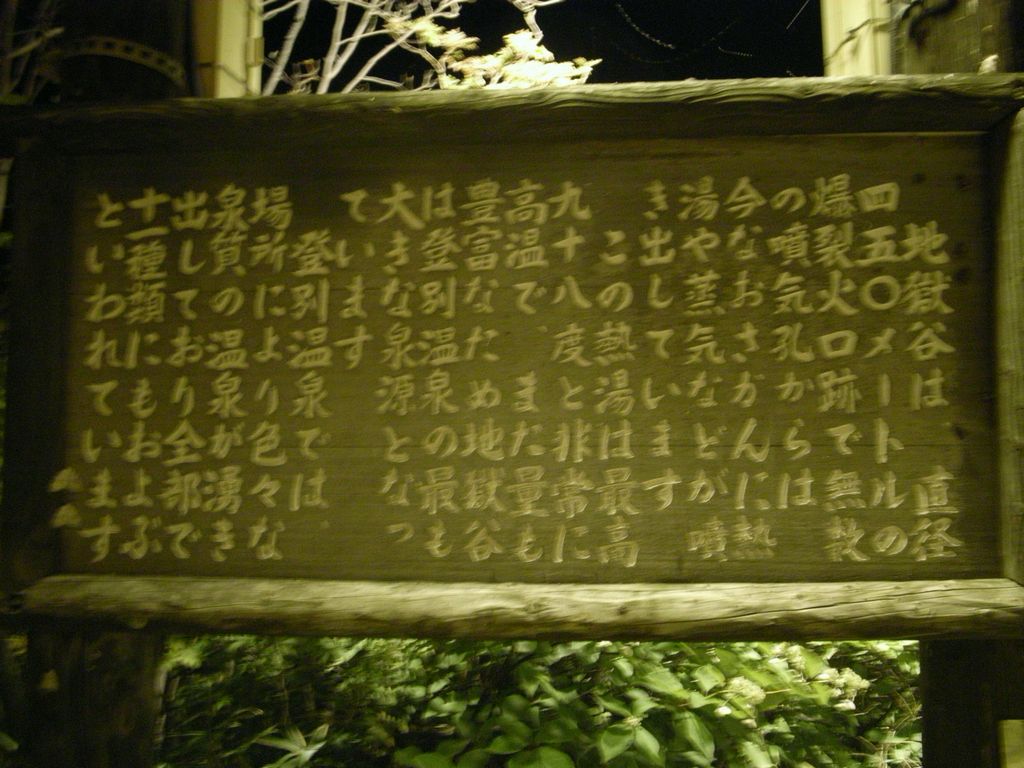 地獄谷は　直径
四五〇メートルの
爆裂火口跡で無数
の噴気孔からは
今なおさかんに熱
湯や蒸気などが噴
き出しています
この熱湯は最高
九十八度と非常に
高温で、まだ量も
豊富なため地獄谷
は登別温泉の最も
大きな泉源となっ
ています
登別温泉では
場所により色々な
泉質の温泉が湧き
出しており全部で
十一種類にもおよぶ
といわれています